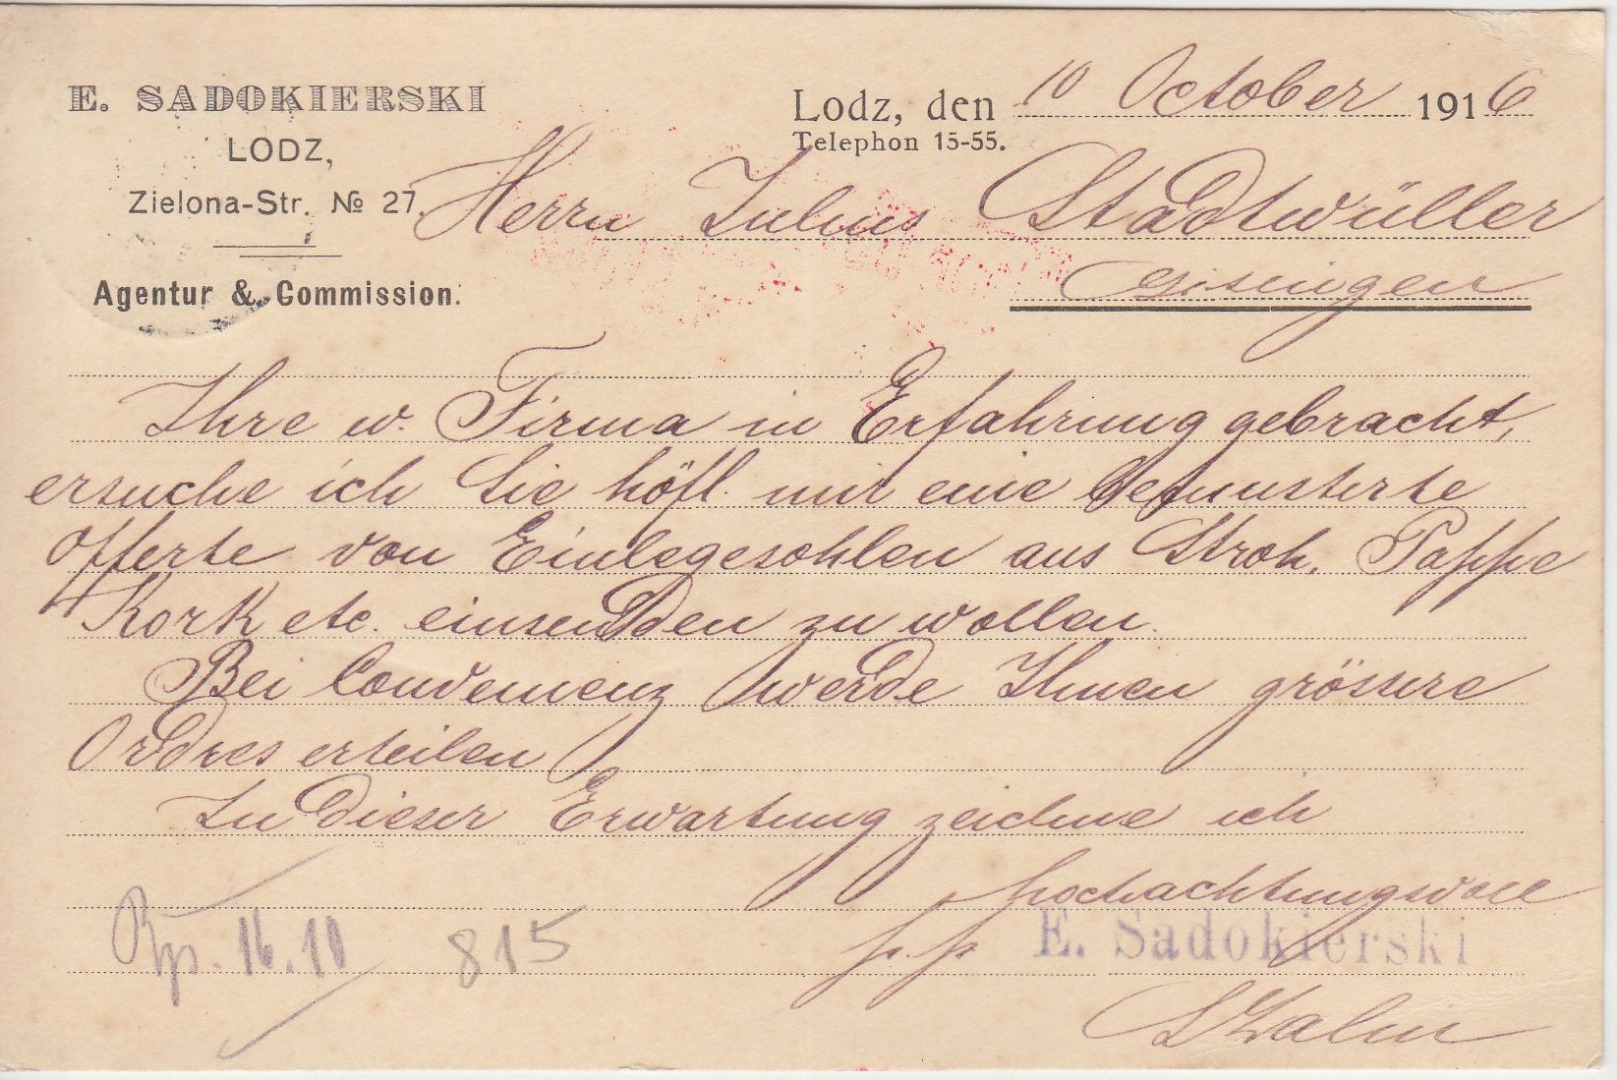 E. SADOKIERSKI
LODZ,
Zielona-Str. № 27.
Agentur & Commission.
Lodz, den 10 October 1916
Telephon 15-55.
Herrn Julius Stadtmüller
Ihre w. Firma in Erfahrung gebracht,
ersuche ich Sie höfl. mir eine bemusterte
Offerte von Einlegesohlen aus Stroh, Pappe
Kork etc. einsenden zu wollen.
Bei Convenienz werde Ihnen grössere
Ordres erteilen
In dieser Erwartung zeichne ich
hochachtungsvoll
p.p. E. Sadokierski
16.10
815